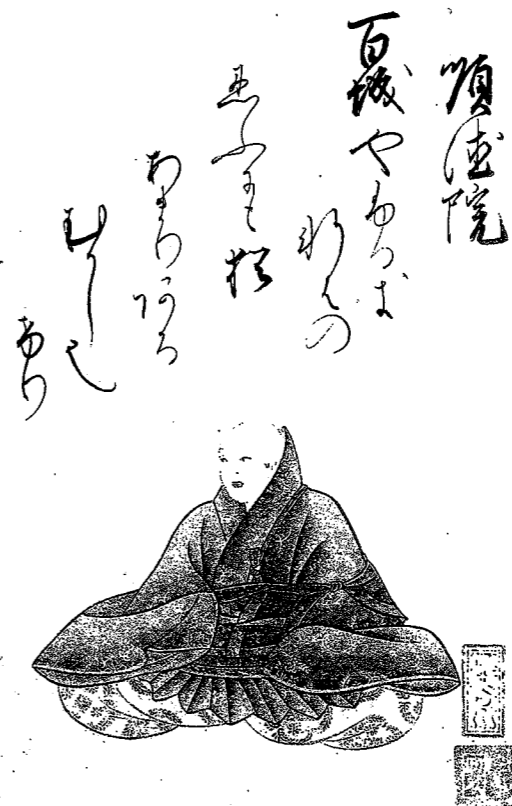 順徳院
百磯やふるき
軒はの
忍ふにも猶
あまりある
むかし也
けり